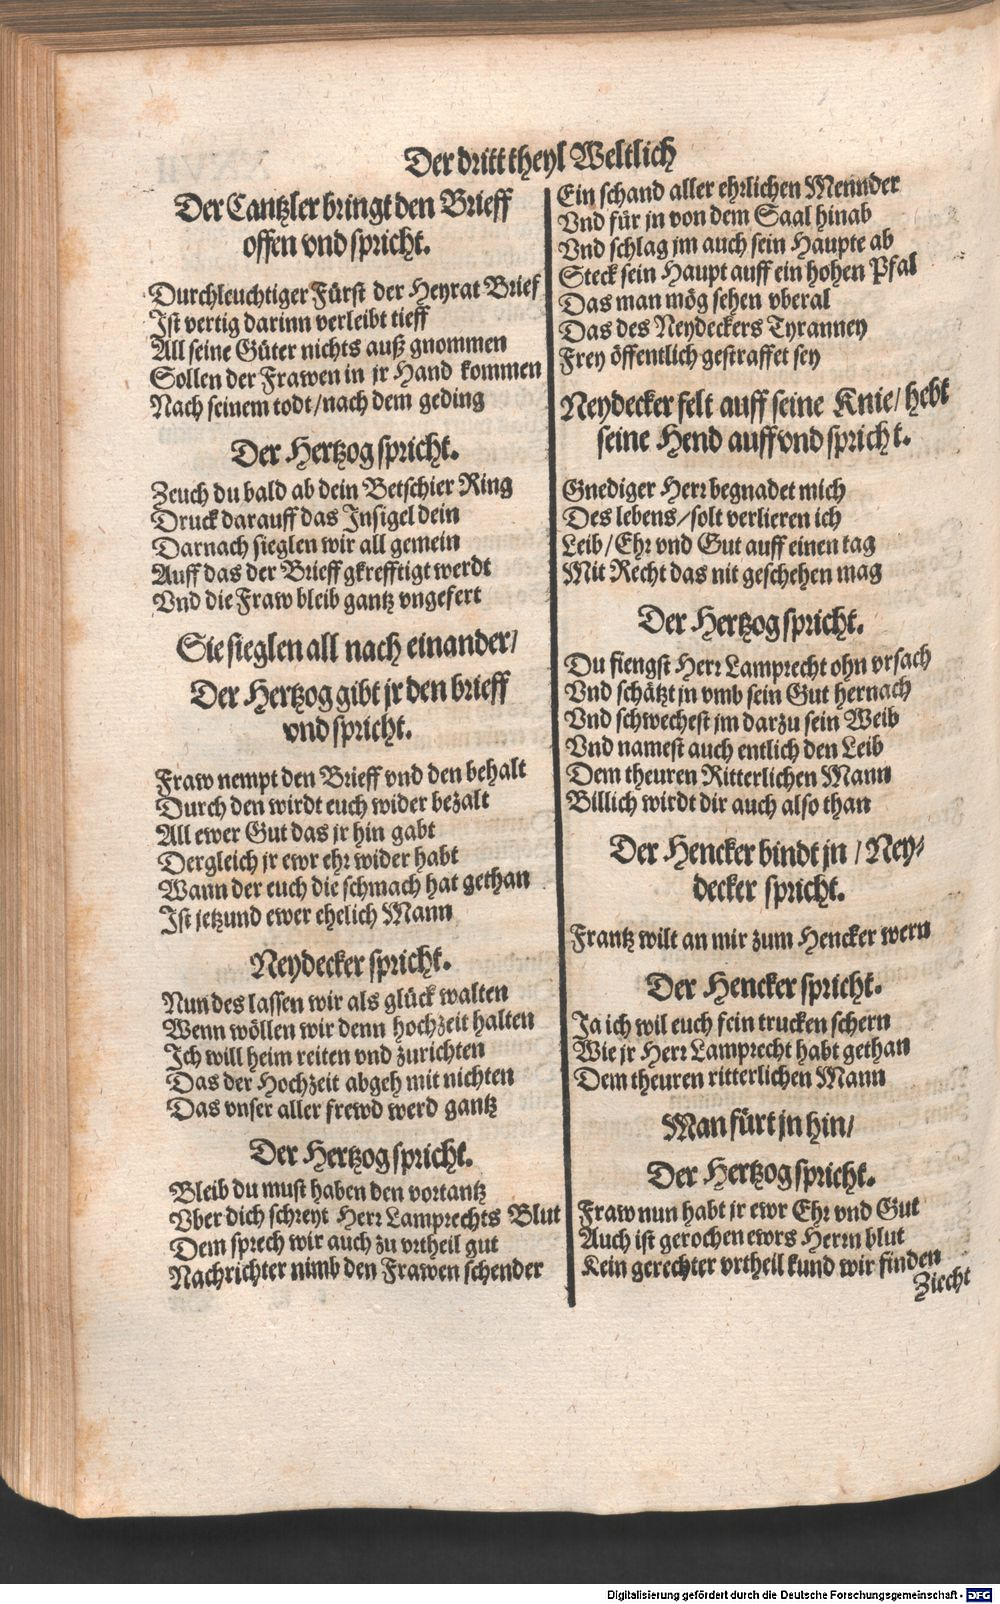 Der dritt theyl Weltlich
Der Cantzler bringt den Brieff
offen vnd spricht.
Durchleuchtiger Fürst der Heyrat Brief
Ist vertig darinn verleibt tieff
All seine Güter nichts auß gnommen
Sollen der Frawen in jr Hand kommen
Nach seinem todt / nach dem geding
Der Hertzog spricht.
Zeuch du bald ab dein Betschier Ring
Druck darauff das Insigel dein
Darnach sieglen wir all gemein
Auff das der Brieff gkrefftigt werdt
Vnd die Fraw bleib gantz vngefert
Sie sieglen all nach einander /
Der Hertzog gibt jr den brieff
vnd spricht.
Fraw nempt den Brieff vnd den behalt
Durch den wirdt euch wider bezalt
All ewer Gut das jr hin gabt
Dergleich jr ewr ehr wider habt
Wann der euch die schmach hat gethan
Ist jetzund ewer ehelich Mann
Neydecker spricht.
Nun des lassen wir als glück walten
Wenn wöllen wir denn hochzeit halten
Ich will heim reiten vnd zurichten
Das der Hochzeit abgeh mit nichten
Das vnser aller frewd werd gantz
Der Hertzog spricht.
Bleib du must haben den vortantz
Vber dich schreyt Herr Lamprechts Blut
Dem sprech wir auch zu vrtheil gut
Nachrichter nimb den Frawen schender
Ein schand aller ehrlichen Mennder
Vnd für jn von dem Saal hinab
Vnd schlag jm auch sein Haupte ab
Steck sein Haupt auff ein hohen Pfal
Das man mög sehen vberal
Das des Neydeckers Tyranney
Frey öffentlich gestraffet sey
Neydecker felt auff seine Knie / hebt
seine Hend auff vnd spricht.
Gnediger Herr begnadet mich
Des lebens / solt verlieren ich
Leib / Ehr vnd Gut auff einen tag
Mit Recht das nit geschehen mag
Der Hertzog spricht.
Du fiengst Herr Lamprecht ohn vrsach
Vnd schätzt jn vmb sein Gut hernach
Vnd schwechest jm darzu sein Weib
Vnd namest auch entlich den Leib
Dem theuren Ritterlichen Mann
Billich wirdt dir auch also than
Der Hencker bindt jn / Ney-
decker spricht.
Frantz wilt an mir zum Hencker wern
Der Hencker spricht.
Ja ich wil euch fein trucken schern
Wie jr Herr Lamprecht habt gethan
Dem theuren ritterlichen Mann
Man fürt jn hin /
Der Hertzog spricht.
Fraw nun habt jr ewr Ehr vnd Gut
Auch ist gerochen ewrs Herrn blut
Kein gerechter vrtheil kund wir finden
Ziecht
Digitalisierung gefördert durch die Deutsche Forschungsgemeinschaft - DFG